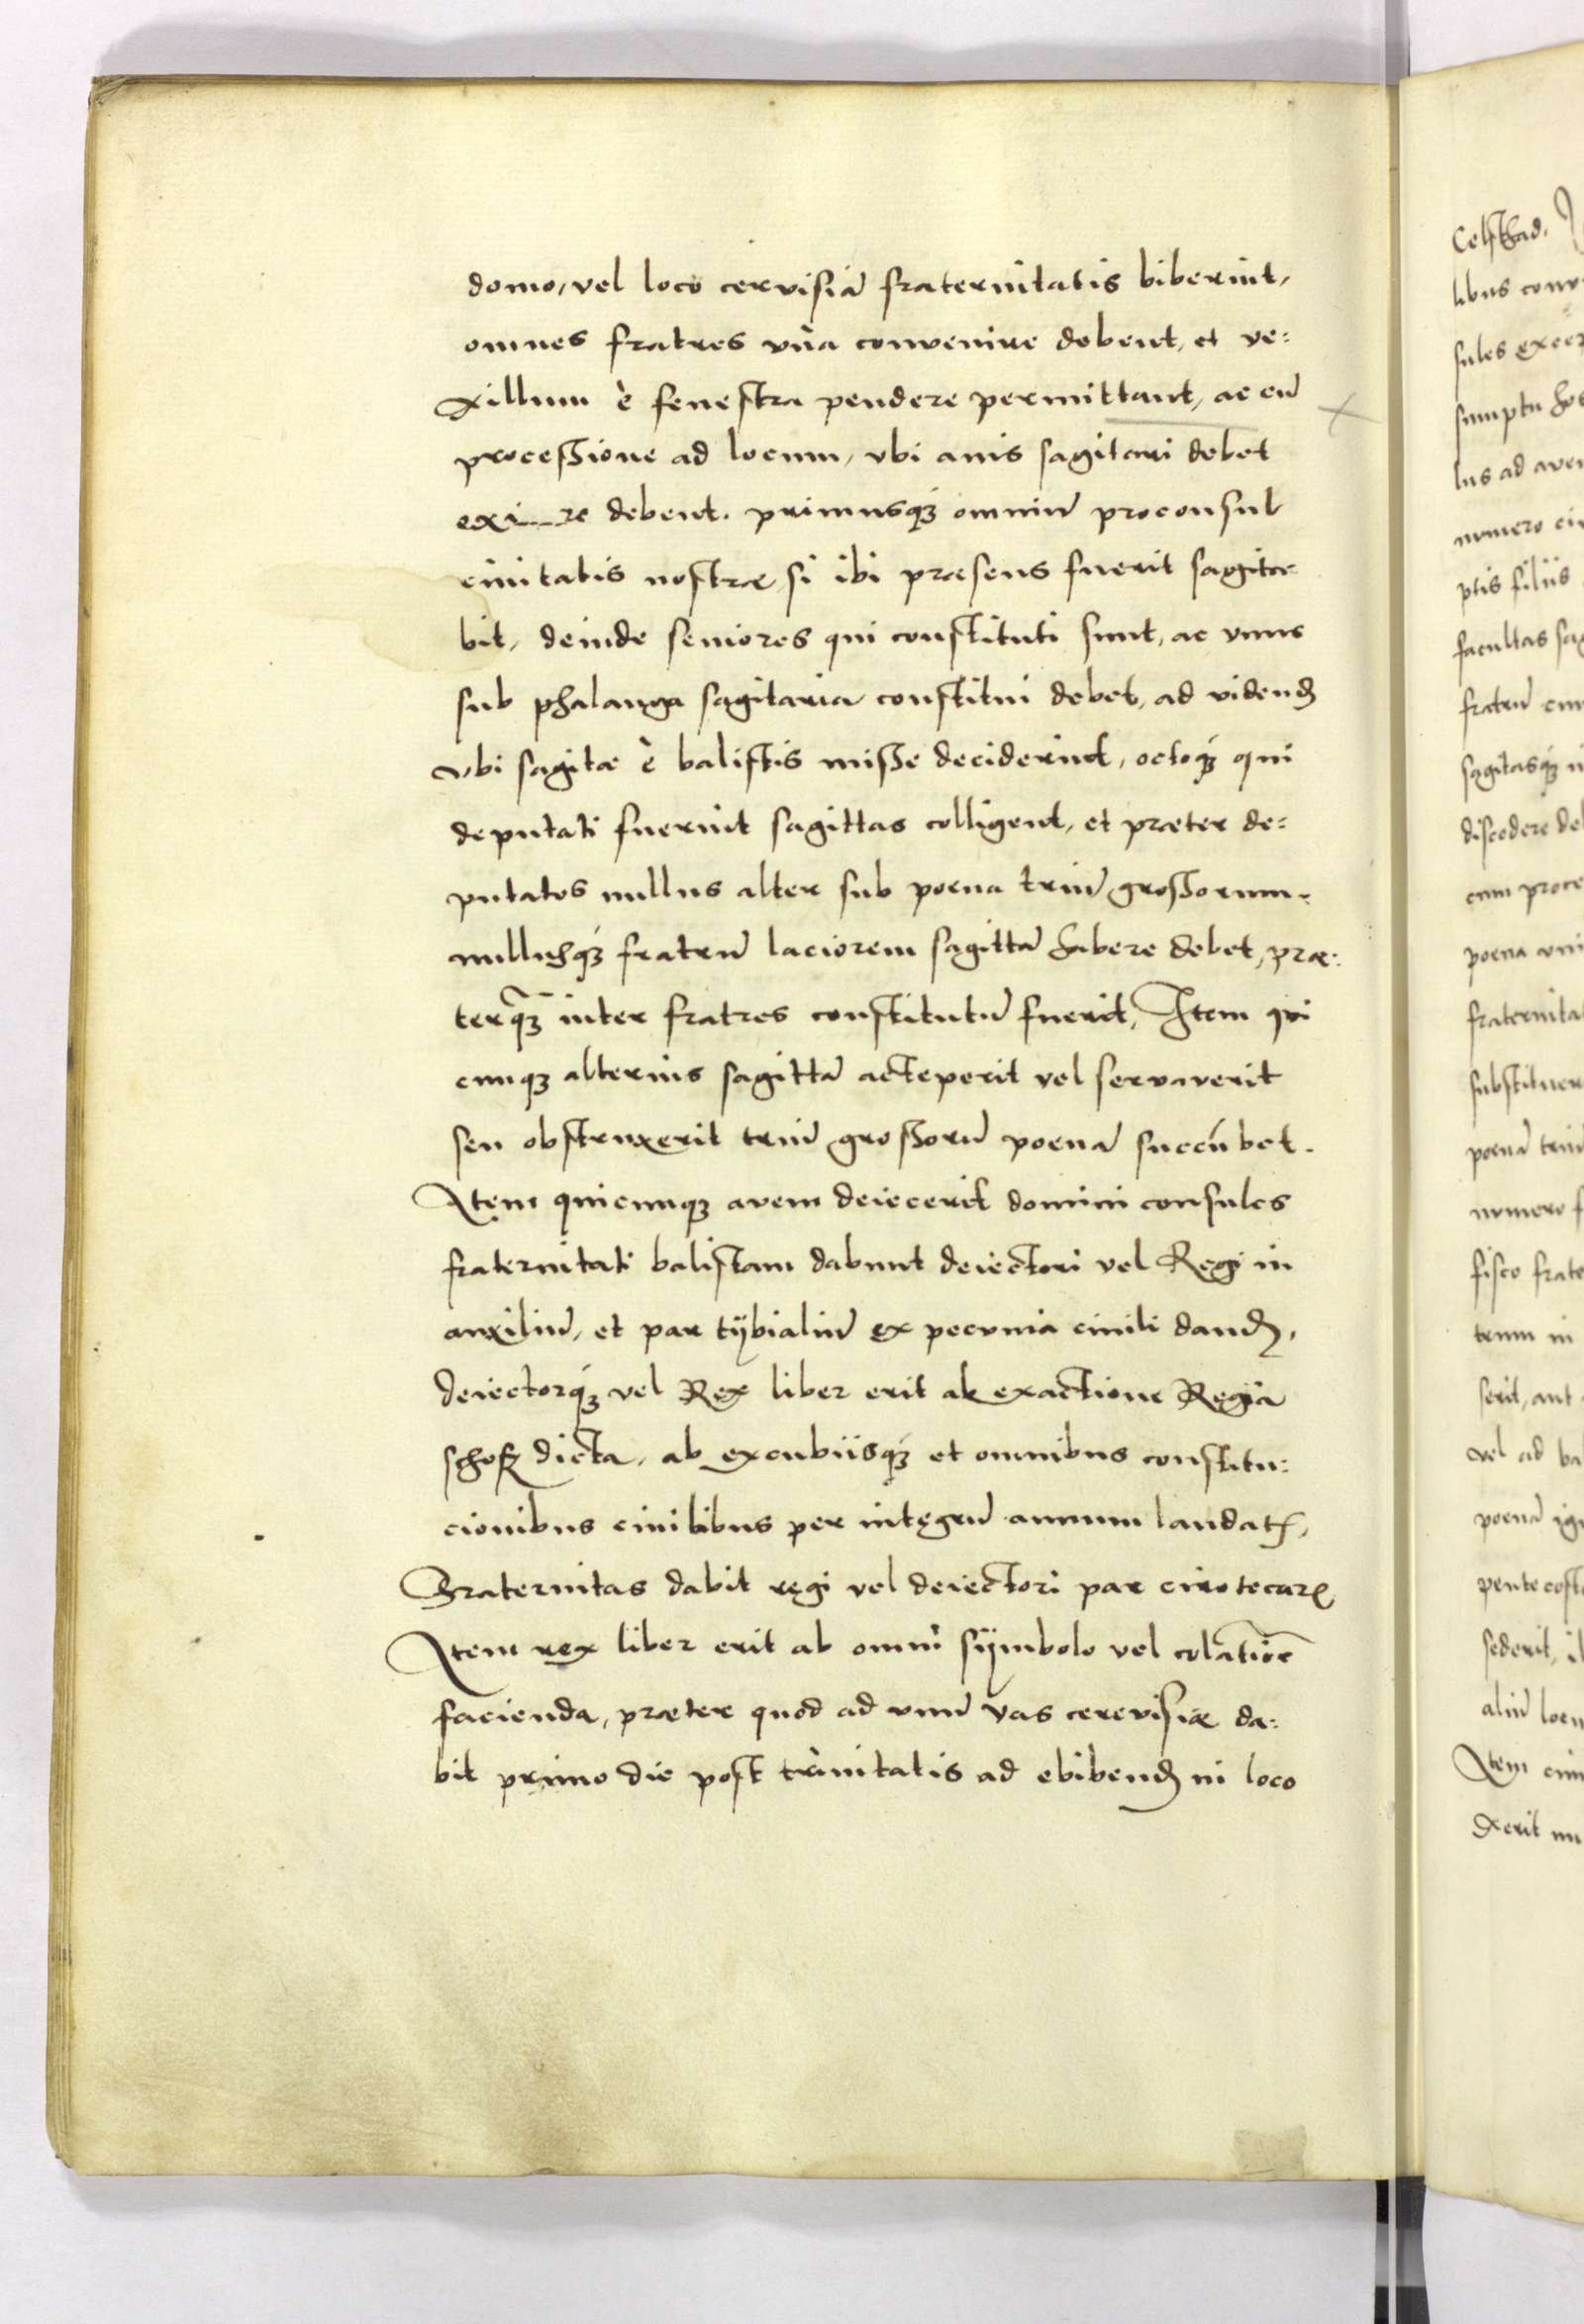 domo, vel loco cervisiā fraternitatis biberint,
omnes fratres vna convenire debent, et ve:
xillum è fenestra pendere permittant, ac cū
processione ad locum, vbi auis sagitari debet
exi__re debent. primusq́ꝫ omniū proconsul
ciuitatis nostræ si ibi præsens fuerit sagita:
bit, deinde seniores qui constituti sunt, ac vnus
sub phalanga sagitaria constitui debet, ad vidend
vbi sagitæ è balistis misse deciderint, octoq́ꝫ qui
deputati fuerint sagittas colligent, et præter de:
putatos nullus alter sub poena triū grossorum.
nullusq́ꝫ fratrū laciorem sagittā habere debet, præ:
terq̃ꝫ inter fratres constitutū fuerit, Item qui
cunqꝫ alterius sagittā acceperit vel servaverit
seu obstruxerit triū grossorū poenā succūbet.
Item quicunqꝫ avem deiecerit domini consules
fraternitati balistam dabunt deiectori vel Regi in
auxiliū, et par tÿbialiū ex pecunia ciuili dand,
deiectorq́ꝫ vel Rex liber erit ab exactione Regia
schoß dicta, ab excubiisq́ꝫ et omnibus constitu:
cionibus ciuilibus per integrū annum laudat,
Fraternitas dabit regi vel deiectori par cirotecarꝝ
Item rex liber erit ab omni sÿmbolo vel colatiōe
facienda, præter quod ad vnū vas cerevisiæ da:
bit primo die post trinitatis ad ebibend in loco
Celsthad.
libus conv
sules exer
sumptu hos
lus ad aven
numero ci
ptis filiis
facultas sag
fratrū cum
sagitasq́ꝫ
discedere de
cum proce
poena
fraternita
substituer
poenā triū
numero f
fisco frate
trum in
serit, aut
vel ad ba
poenā ign
pentecost
sederit, il
aliū locu
Item
xerit